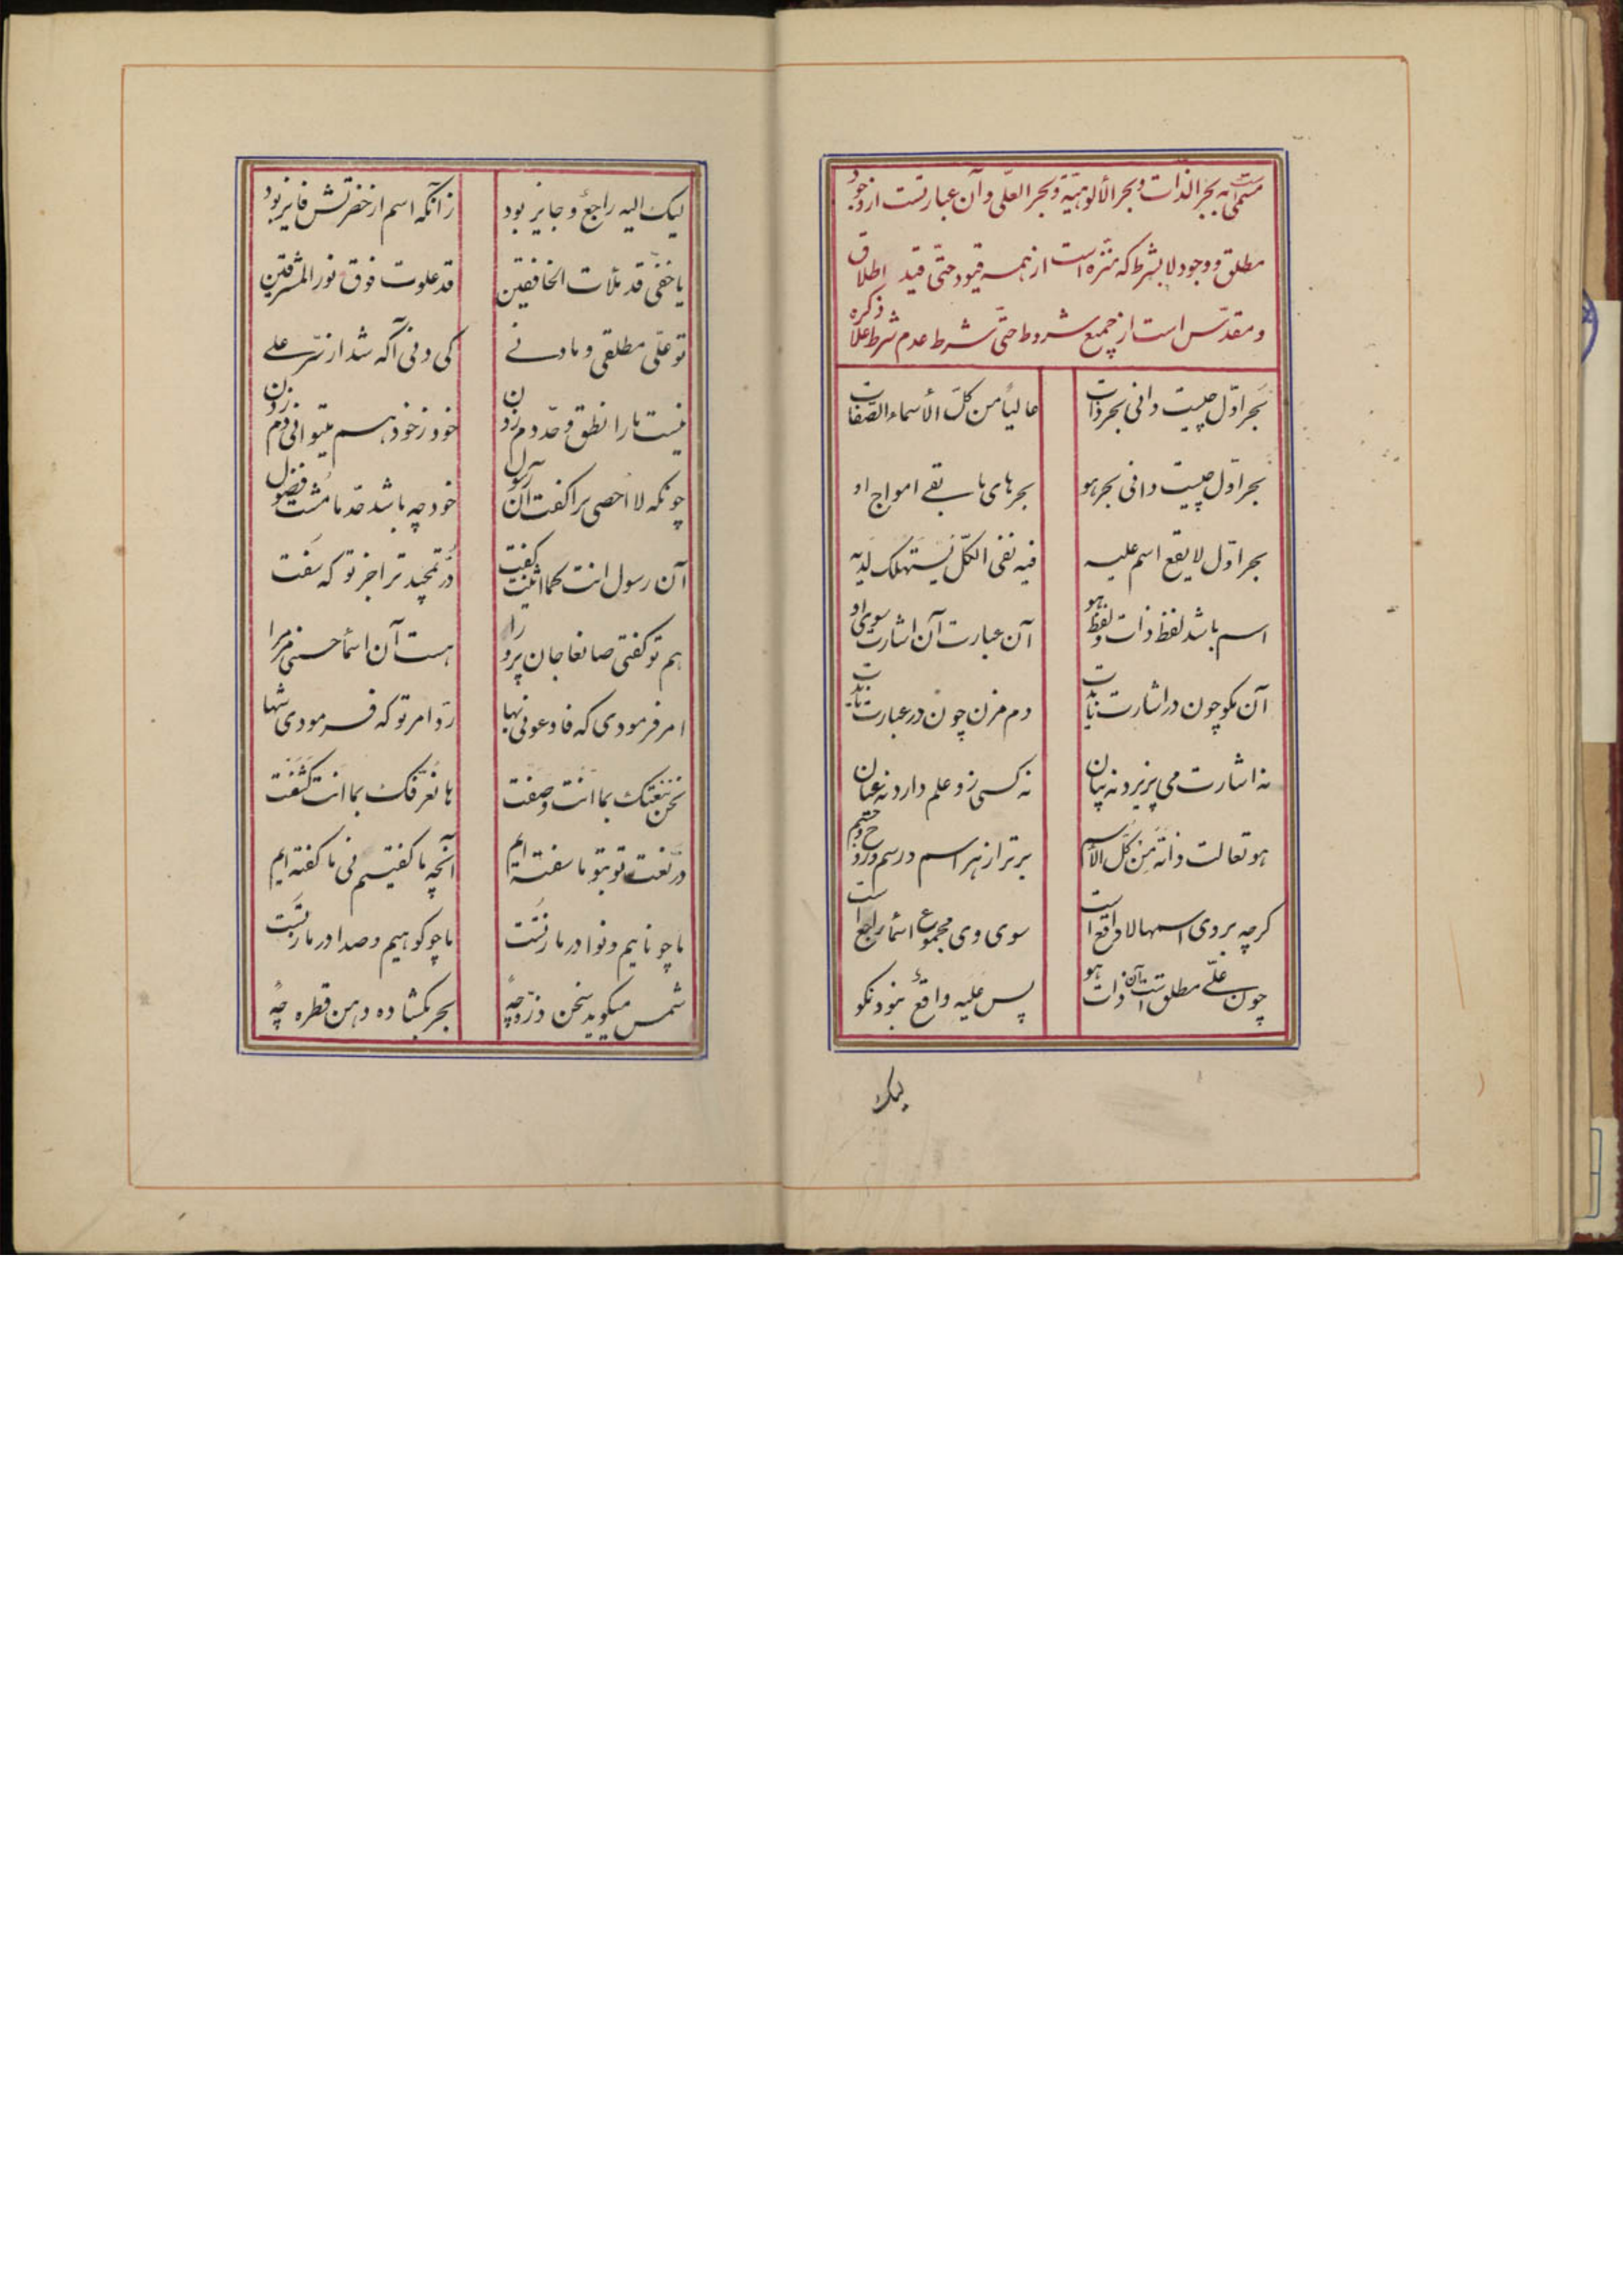 مسمی است به بحر الذات و بحر الألوهیّة و بحر العلّی و آن عبارتست از وجود
مطلق و وجود لا بشرط که منزه است از همه قیود حتی قید اطلاق
و مقدّس است از جمیع شروط حتّی شرط عدم شرط علا ذکره
بحر اوّل چیست دانی بحر ذات عالیاً من کلّ الأسماء الصّفات
بحر اوّل چیست دانی بحر هو بحرهای مابقی امواج او
بحر اوّل لا یقع اسم علیه فیه نفی الکلّ یستهلک لدیه
اسم باشد لفظ ذات و لفظ هو آن عبارت آن اشارت سوی او
آن مگو چون در اشارت نایدت دم مزن چون در عبارت نایدت
نه اشارت می پزیرد نه بیان نه کسی زو علم دارد نه عیان
هو تعالت ذاته من کلّ الاسم برتر از هر اسم و رسم و روح و جسم
گرچه بر وی اسمها لا واقع است سوی وی مجموع اسما راجع است
چون علّی مطلق است آن ذات هو پس علیه واقع نبود نکو
لیک
لیک الیه راجع و جایز بود زآنکه اسم از حضرتش فایز بود
یا خفّی قد ملأت الخافقین قد علوت فوق نور المشرقین
تو علّی مطلقی و ما دنی کی دنی آگه شد از سرّ علی
نیست ما را نطق و حدّ دم زدن خود ز خود هم میتوانی دم زدن
چونکه لا احصی برا گفت آن رسول خود چه باشد حدّ ما مشت فضول
آن رسول انت کما اثنیت گفت درّ تمجید ترا جز تو که سفت
هم تو گفتی صانعا جان پرورا هست آن اسمأ حسنی مر مرا
امر فرمودی که فادعونی بها ردّ امر تو که فرمودی شها
نحن ننعتک بما انت وصفت ها نعرّفک بما انت کشفت
درّ نعت تو بتو ما سفته ایم آنچه ما گفتیم نی ما گفته ایم
ما چو نائیم و نوا در ما ز تست ما چو کوهیم و صدا در ما ز تست
شمس میگوید سخن ذرّه چه بحر بگشاده دهن قطره چه